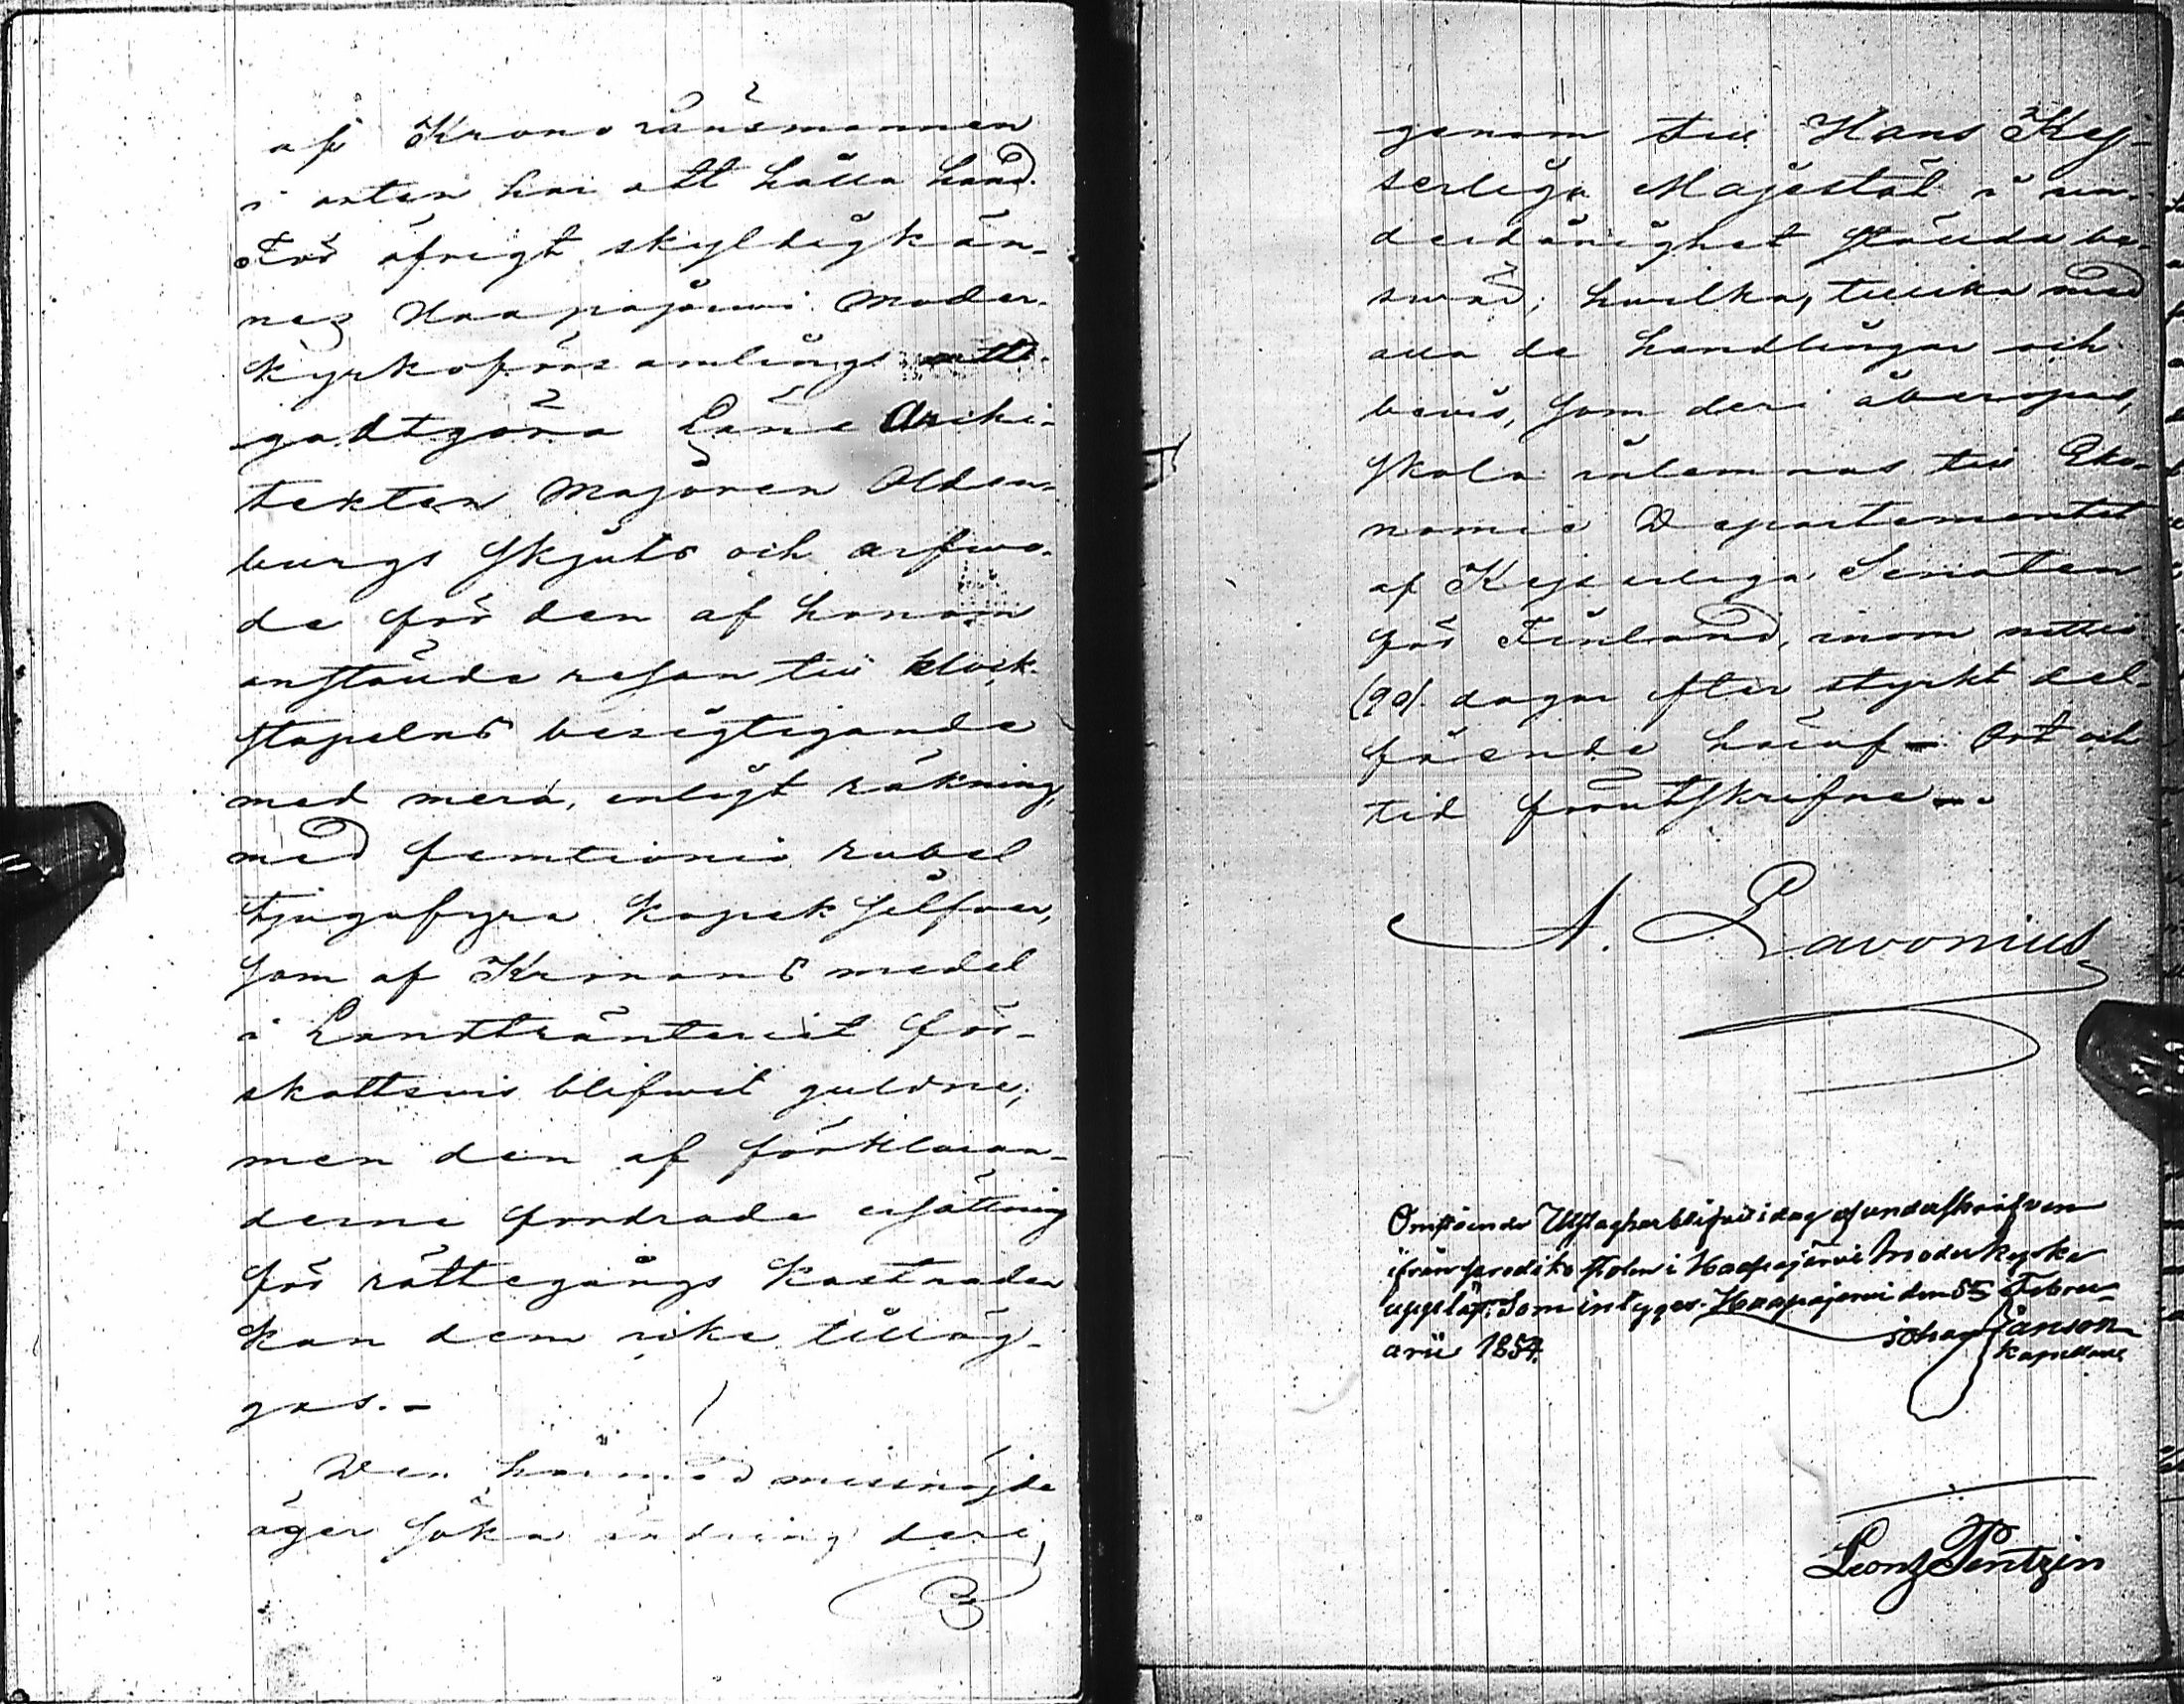 af Krono länsmannen
i orten har att hålla hand.
För öfrigt skyldigkän-
nes Haapajärvi Moder-
kyrkoförsamling att
godtgöra Läns Arki-
tekten Majoren Olden-
burgs skjuts och arfvo-
de för den af honom
anstälde resan till klock-
stapelns besigtigande
med mera, enligt räkning,
med femtionio rubel
tjugufyra kopek silfver,
som af Kronans medel
i Landtränteriet för-
skottsvis blifvit guldne;
men den af förklaran-
derne fordrade ersättning
för rättegångs kostnader
kan dem icke tilläg-
gas.-
Den härmed missnöjde
äger söka ändring deri,
genom till Hans Kej-
serliga Majestät i un-
derdånighet stälda be-
svär, hvilka, tillika med
alla de handlingar och
bevis, som deri åberopas,
skola inlemnas till Eko-
nomie Departementet
af Kejserliga Senaten
för Finland, inom nittio
(90) dagar efter styrkt del-
fående häraf. Ort och
tid förutskrifne.
A. Lavonius
Omstående Utslag har blifvit i dag af underskrifven
ifrån predikostolen i Haapajärvi Moderkyrka
uppläst: Som intygas. Haapajärvi den 5 Febru-
arii 1854. Johan Janson
Kapellan